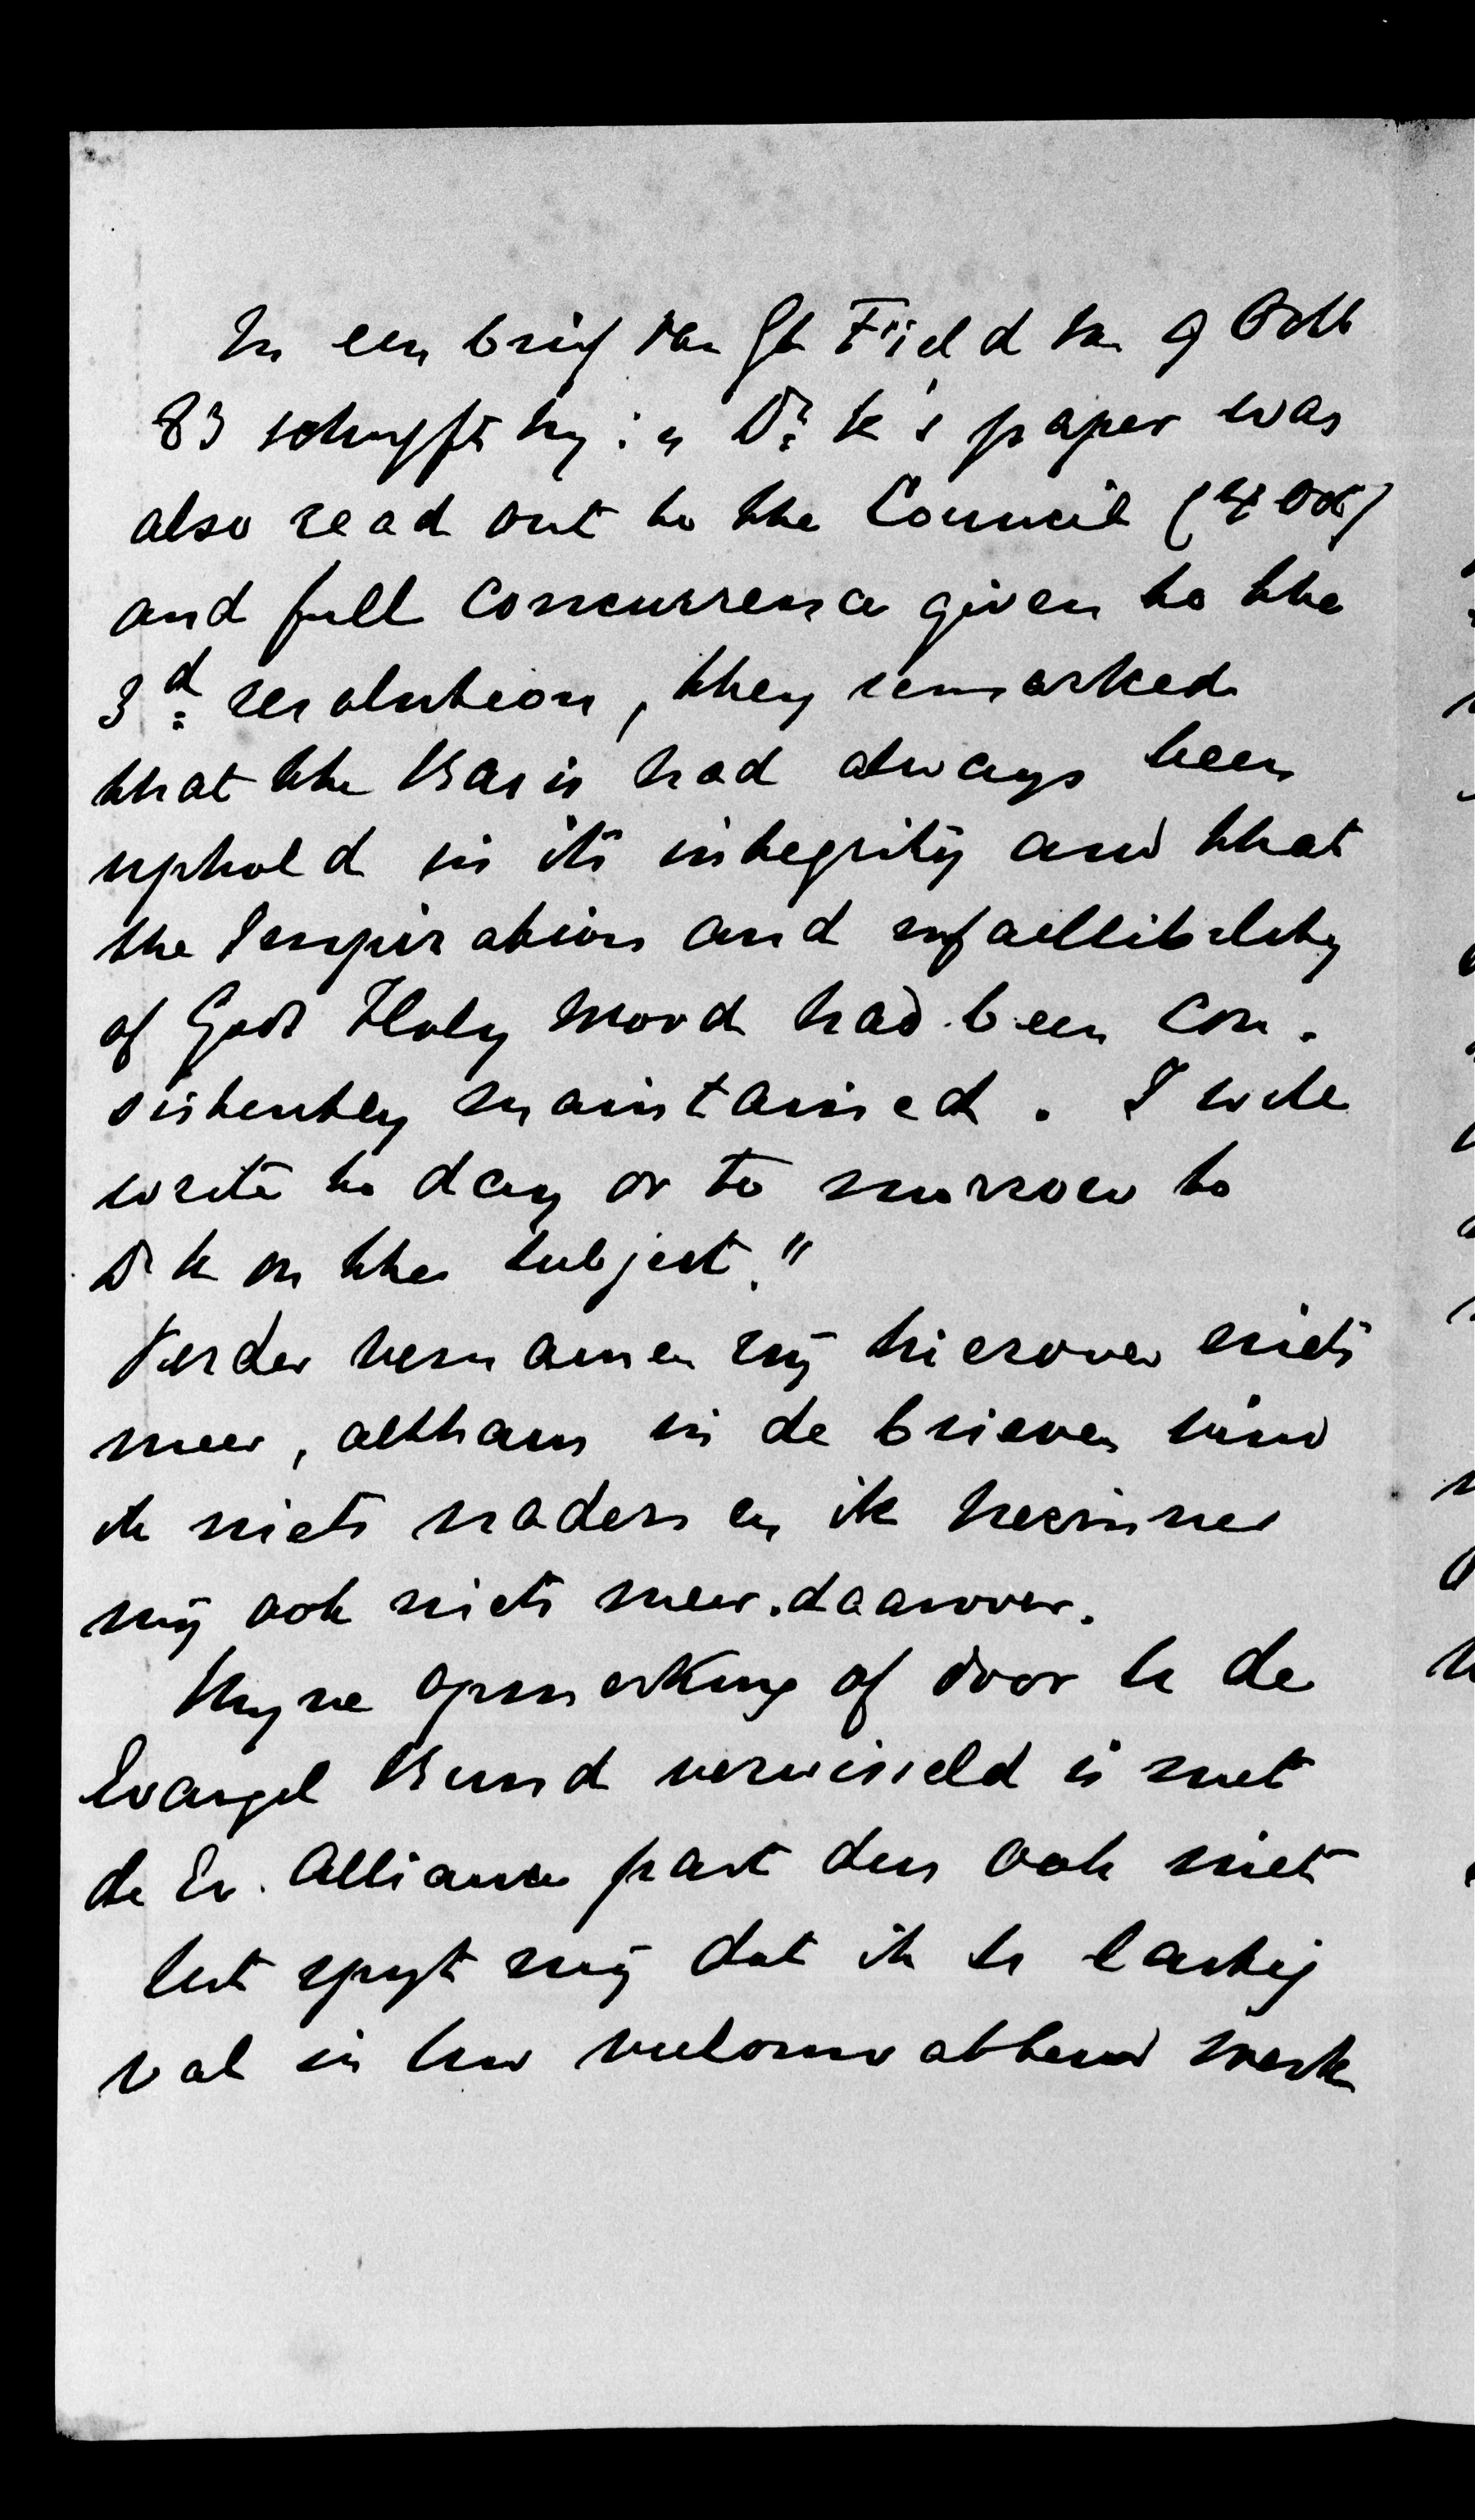 In een brief van Gl Field van 9 Octb
83 schryft hy: "Dr. K's paper was
also read out to the Council (4 Oct)
and full concurrence given to the
3d. resolution, they remarked
that the Basis had always been
uphold in its integrity and that
the Inspiration and infallibility
of Gods Holy Word had been con-
sistently maintained. I will
write to day or to morrow to
Dr K on the subject."
Verder vernamen wij hierover niets
meer, althans in de brieven vind
ik niets naders en ik herinner
mij ook niets meer daarover.
Myne opmerking of door U de
Evangel Bund verwisseld is met
de Ev. Alliance past dus ook niet
het spyt mij dat ik U lastig
val in Uw veelomvattend werk